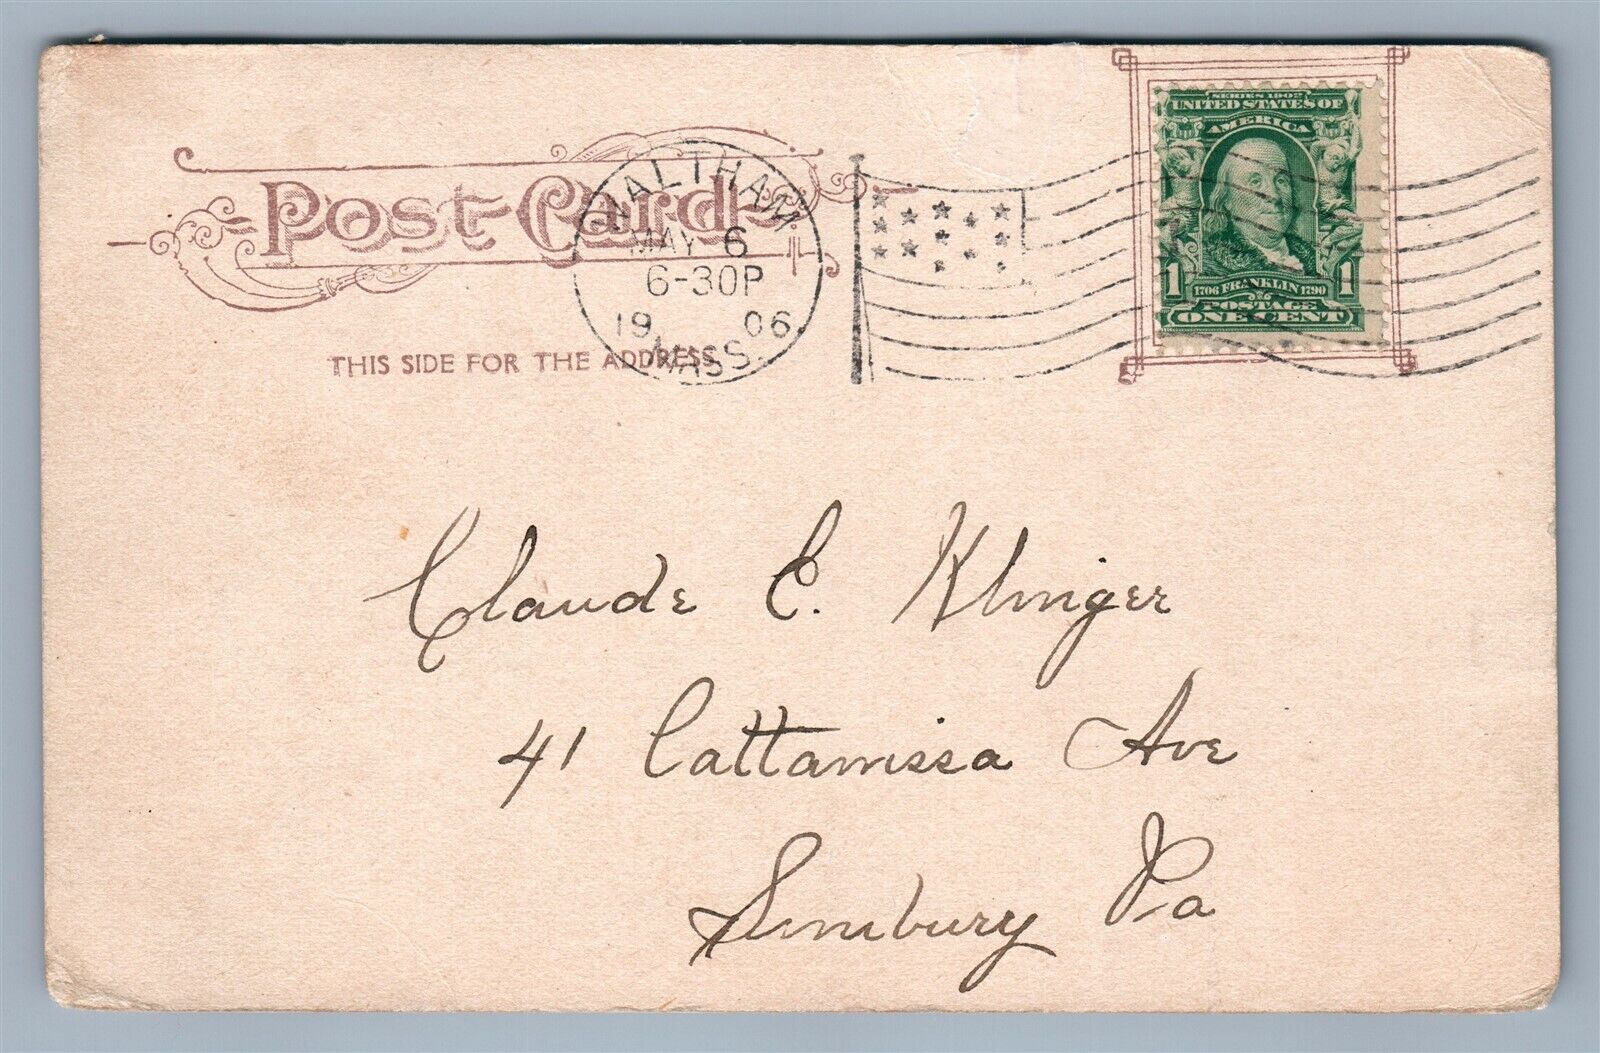 SERIES 1902
UNITED STATES OF
AMERICA
1 1706 FRANKLIN 1790 1
POSTAGE
ONE CENT
Post Card
WALTHAM
MAY 6
6-30P
19 06
MASS.
THIS SIDE FOR THE ADDRESS
Claude E. Klinger
41 Cattawissa Ave
Sunbury Pa